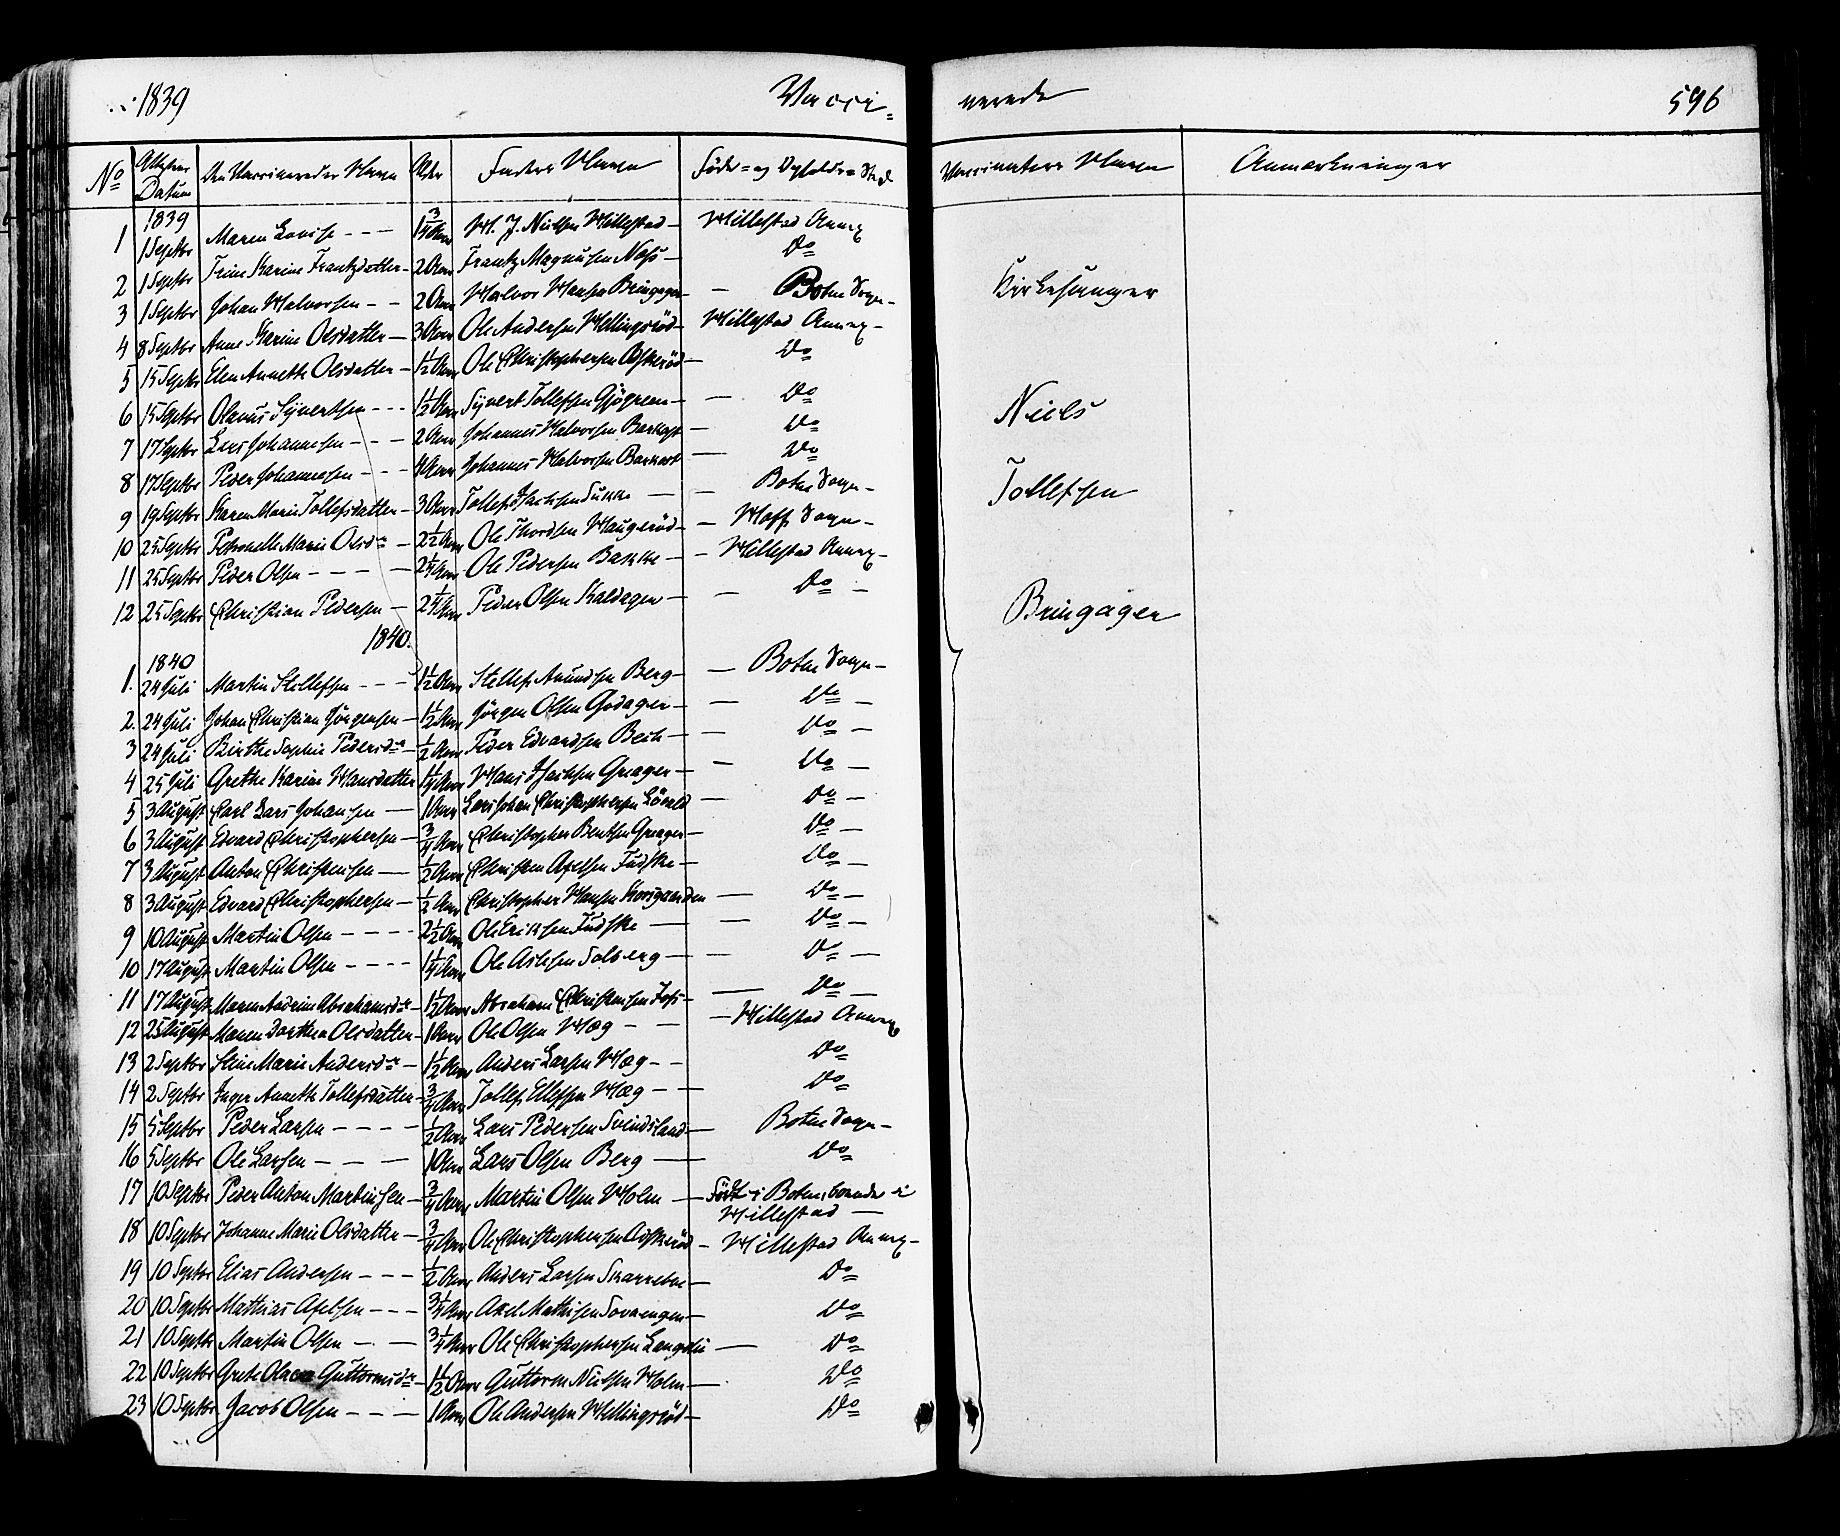 1839 Vacci-
nerede 596
No Attestens Datum Den Vaccineredes Navn Alder Faders Navn Føde- og Opholds-Sted
Vaccinateurs Navn Anmærkninger
1839
1 1 Septbr Maren Lovise - - - 1 3/4 Aar H. J. Nielsen Hillestad - Hillestad Annex
2 1 Septbr Trine Karine Frantzdatter - 2 Aar Frantz Magnusen Næss - Do
3 1 Septbr Johan Halvorsen - - 2 Aar Halvor Hansen Bringager - Botne Sogn -
4 8 Septbr Anne Karine Olsdatter - 3 Aar Ole Andersen Hellingsröd - Hillestad Annex -
5 15 Septbr Elen Annette Olsdatter - 1 1/2 Aar Ole Christophersen Askeröd - Do
6 15 Septbr Olavus Syvertsen - - - 1 1/2 Aar Syvert Tollefsen - Do
7 17 Septbr Lars Johannesen - - - 2 Aar Johannes Halvorsen - Do
8 17 Septbr Peder Johannesen - - - 4 Aar Johannes Halvorsen - Do
9 19 Septbr Karen Marie Tollefsdatter - 3 Aar Tollef Isachsen Sukke - Botne Sogn -
10 25 Septbr Petronelle Marie Olsdr - 2 1/2 Aar Ole Thordsen Haugeröd - Hoff Sogn -
11 25 Septbr Peder Olsen - - - - 2 1/4 Aar Ole Pedersen Bakke - Hillestad Annex -
12 25 Septbr Christian Pedersen - 2 1/4 Aar Peder Olsen Kaldager - Do -
1840.
1840
1. 24 Juli Martin Stellefsen - - - 1 1/2 Aar Stellef Amundsen Berg - Botne Sogn -
2. 24 Juli Johan Christian Jörgensen - 1 1/2 Aar Jörgen Olsen Godager - Do -
3 24 Juli Birthe Sophie Pedersdr - 1/2 Aar Peder Edvardsen Bech - Do -
4 25 Juli Grethe Karine Hansdatter 1 1/4 Aar Hans Isachsen Greager - Do -
5 3 August Carl Lars Johansen - 1 Aar Lars Johan Christophersen Lövald - Do -
6 3 August Edvard Christophersen - 3/4 Aar Christopher Bentsen Greager - Do -
7 3 August Anton Christensen - 1/2 Aar Christen Axelsen Fudske - Do -
8 3 August Edvard Christophersen - 1/2 Aar Christopher Hansen Korsgaarden - Do -
9 10 August Martin Olsen - - - - 2 1/2 Aar Ole Eriksen Fudske - Do -
10 17 August Martin Olsen - - - 1 1/4 Aar Ole Solberg - Do -
11 17 August Maren Andrine Abrahamsdr 1 1/2 Aar Abraham Christensen - Do -
12 25 August Maren Dorthea Olsdatter - 1 Aar Ole Olsen Hæg - - Hillestad Annex
13 2 Septbr Stine Marie Andersdr - 1 1/2 Aar Anders Larsen Hæg - - Do
14 2 Septbr Inger Annette Tollefsdatter - 3/4 Aar Tollef Ellefsen Hæg - - Do
15 5 Septbr Peder Larsen - - - - 1/2 Aar Lars Pedersen Svindsland - Botne Sogn -
16 5 Septbr Ole Larsen - - - 1 Aar Lars Olsen Berg - Do
17 10 Septbr Peder Anton Martinsen - 3/4 Aar Martin Olsen Holm - Född i Botne, boende i
Hillestad -
18 10 Septbr Johanne Marie Olsdatter - 3/4 Aar Ole Christophersen Askeröd - Hillestad Annex -
19 10 Septbr Elias Andersen - - - 1/2 Aar Anders Larsen Skarreboe - Do
20 10 Septbr Mathias Axelsen - - - 3 1/4 Aar Axel Mathisen - Do
21 10 Septbr Martin Olsen - - 3 1/4 Aar Ole Christophersen Langelie - Do
22 10 Septbr Grete Olava Guttormsdr - 1 1/2 Aar Guttorm Nielsen Holm - Do
23 10 Septbr Jacob Olsen - - - 1 Aar Ole Andersen Hellingsröd - Do
Kirkesanger
Niels
Tollefsen
Bringager